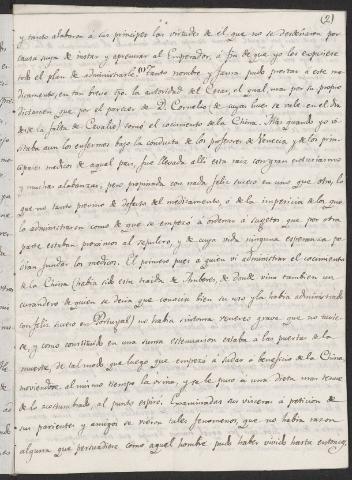 (2)
y tanto alabaron à sus principes las virtudes de el que no se desdeñaron por
causa suya de instar y apresurar al Emperador, à fin de que yo les expusiese
todo el plan de administrarle. (1) Tanto nombre y fama pudo prestar à este me-
dicamento, en tan breve tpo. la autoridad del Cesar, el qual, mas por su propio
dictamen que por el parecer de D. Cornelio (de cuyas luces se vale en el dia
desde la falta de Cavalio) tomó el cocimiento de la China. Mas quando yo vi-
sitaba aun los enfermos bajo la conducta de los profesores de Venecia y de los prin-
cipales medicos de aquel pais, fue llevada alli esta raiz con gran entusiasmo
y muchas alabanzas; pero propinada con nada feliz suceso en uno que otro, lo
que no tanto provino de defecto del medicamento, o de la impericia de los que
lo administraron como de que se empezó à ordenar à sugetos que por otra
parte estaban proximos al sepulcro, y de cuya vida ninguna esperanza po-
dian fundar los medicos. El primero pues à quien vi administrar el cocimiento
de la China (habia sido esta traida de Amberes, de donde vino tambien un
curandero de quien se decia que conocia bien su uso y la habia administrado
con feliz suceso en Portugal) no habia sintoma venereo grave que no tuvie-
se, y como constituido en una suma extenuacion estaba à las puertas de la
muerte, de tal modo que luego que empezó à sudar à beneficio de la China,
moviendose al mismo tiempo la orina, y se le puso à una dieta mas tenue
de lo acostumbrado, al punto espiró. Examinadas sus visceras à peticion de
sus parientes y amigos se vieron tales fenomenos, que no habia razon
alguna que persuadiese como aquel hombre pudo haber vivido hasta entonces,